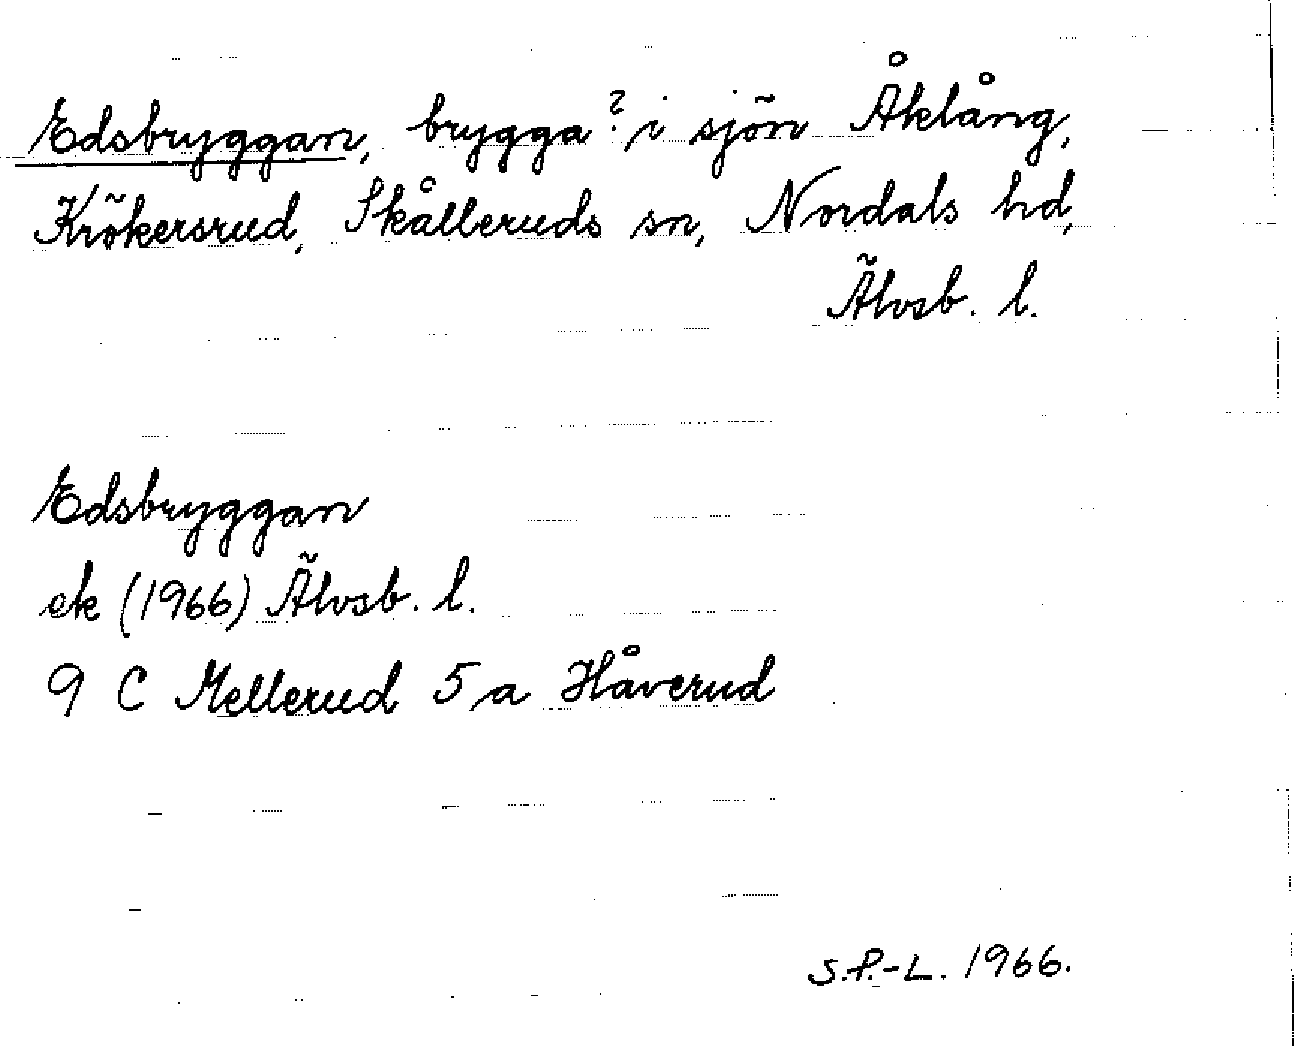 Edsbryggan, brygga? i sjön Åklång,
Krökersrud, Skålleruds sn, Nordals hd,
Älvsb. l.
Edsbryggan
ek (1966) Älvsb. l.
9 C Mellerud 5 a Håverud
S.P.-L. 1966.